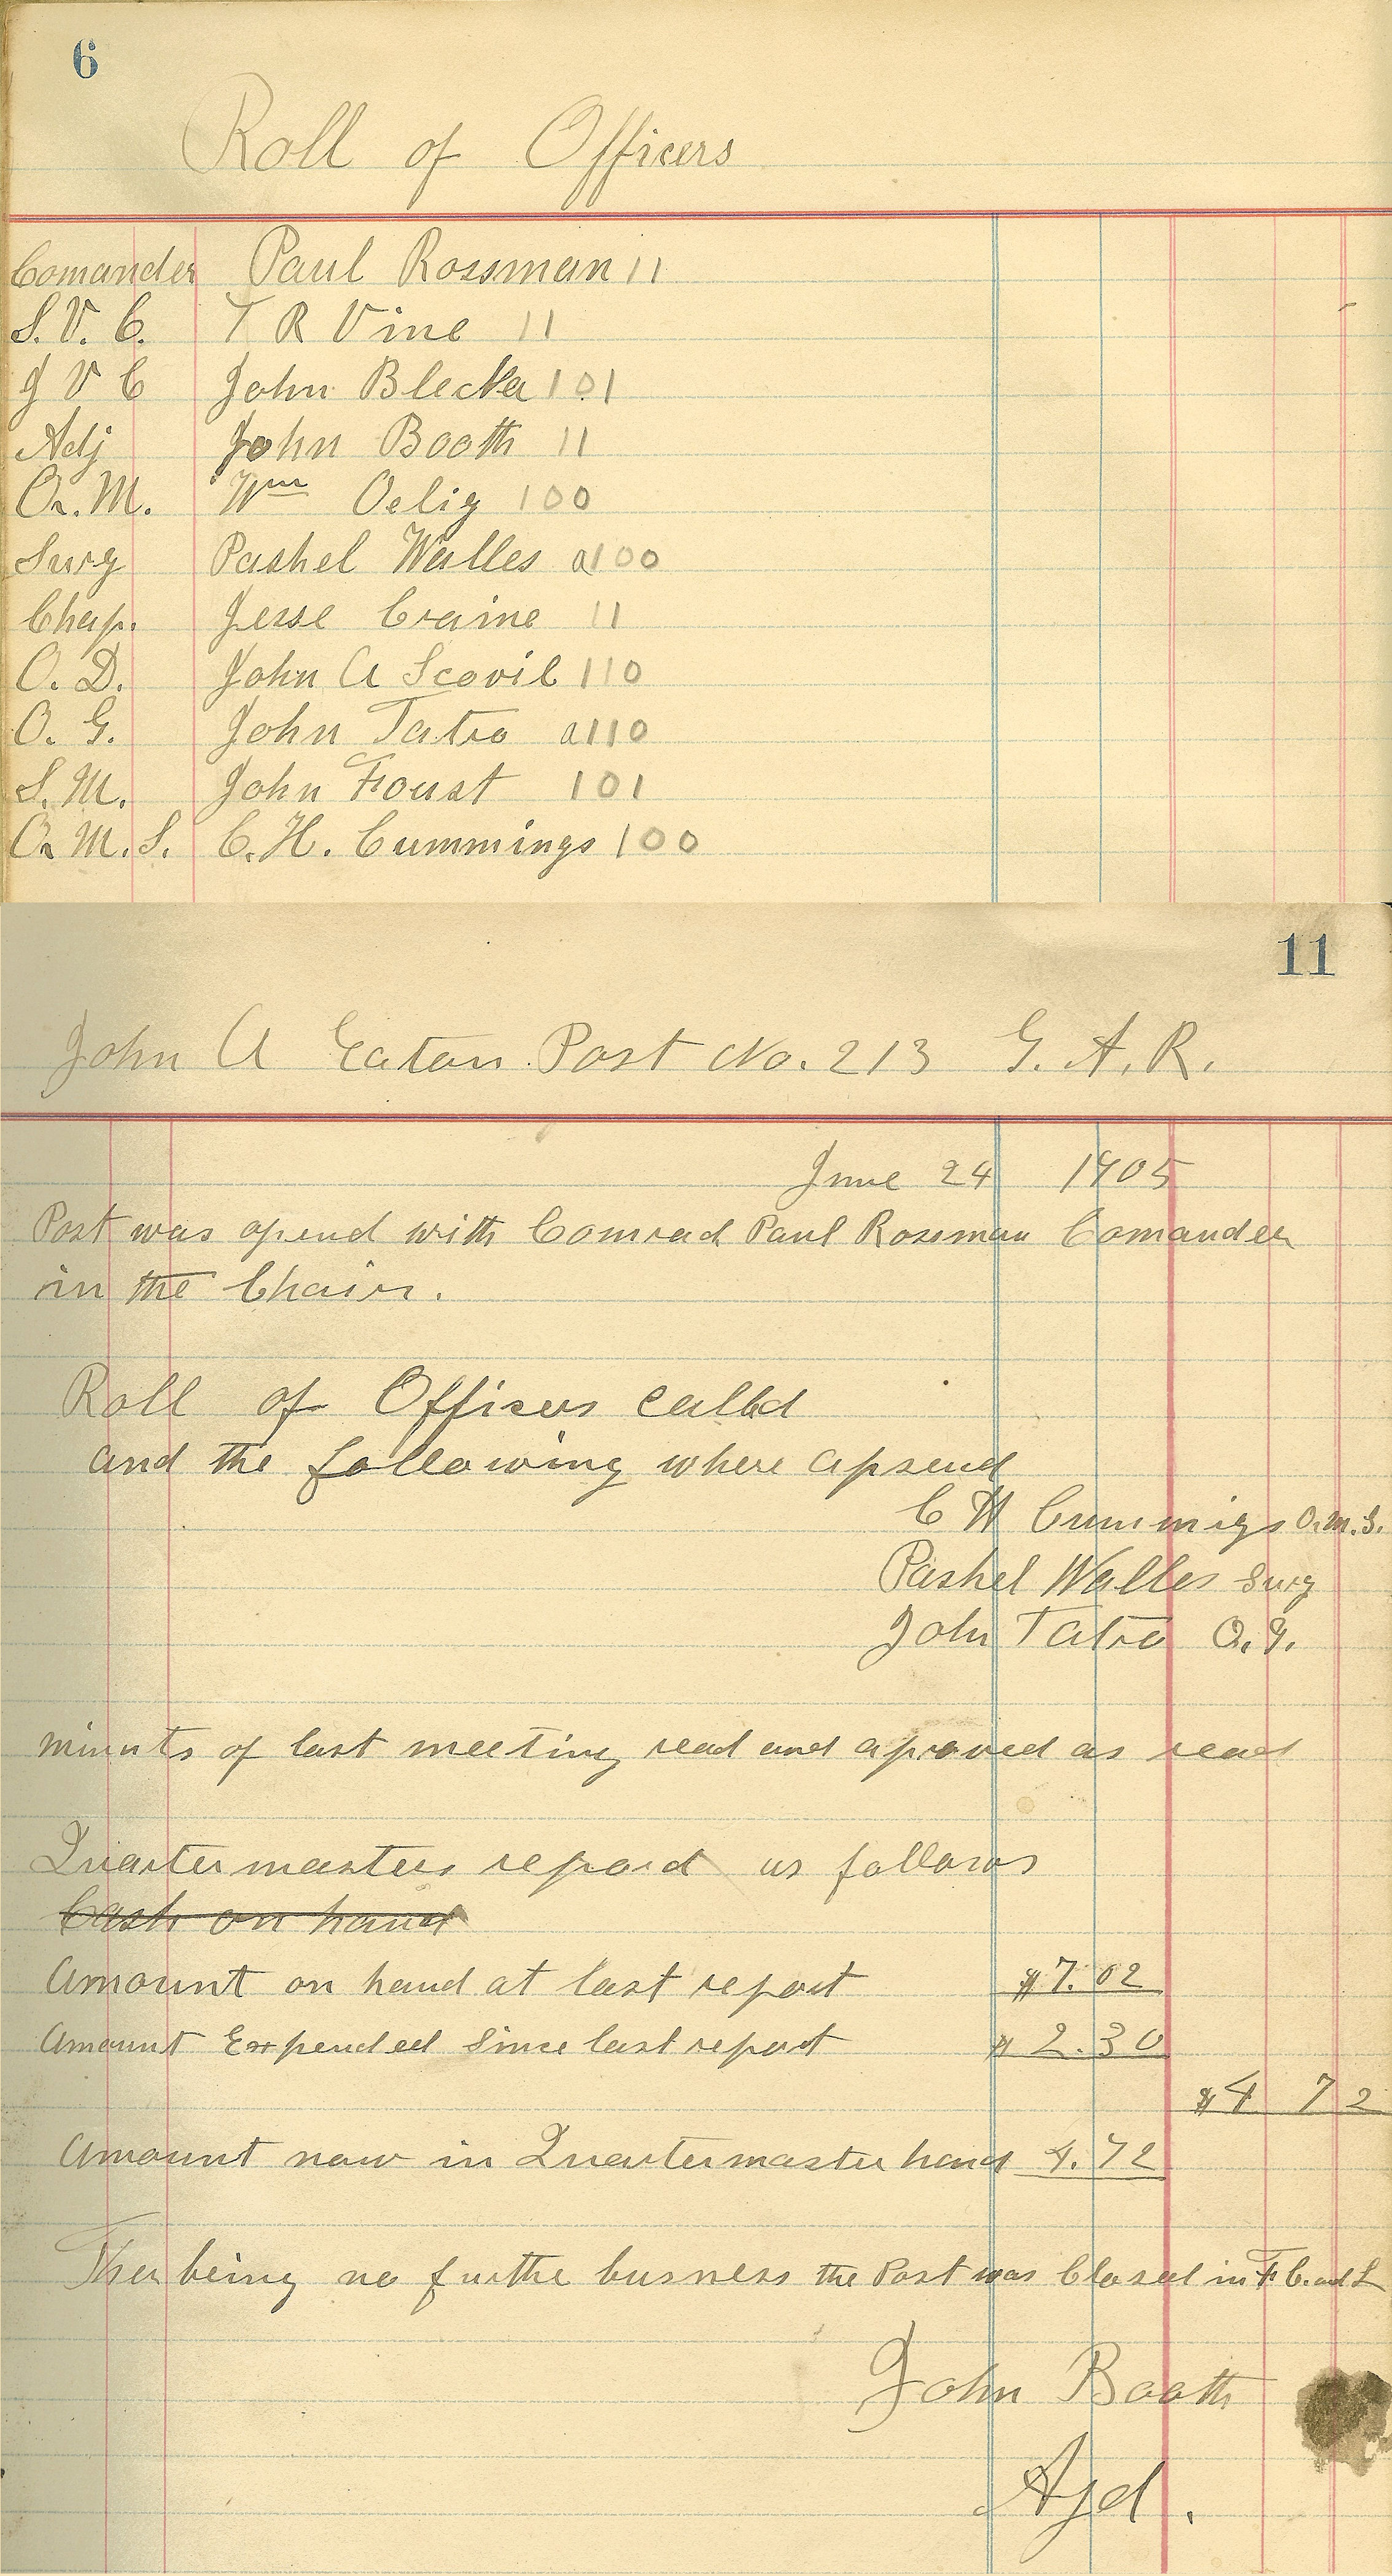 6
Roll of Officers
Comander Paul Rossman 11
S. V. C. T R Vine 11
J V C John Blecka 101
Adj John Booth 11
Q. M. Wm Oelig 100
Surg Pashel Walles a100
Chap. Jesse Craine 11
O. D. John A Scovil 110
O. G. John Tatro a110
S. M. John Foust 101
Q M. S. C. H. Cummings 100
11
John A Eaton Post No. 213 G. A. R.
June 24 1905
Post was opend with Comrad Paul Rossman Comander
in the Chair.
Roll of Officers calld
and the following where apsend
C H Cummigs Q. M. S.
Pashel Walles Surg
John Tatro O. G.
minuts of last meeting read and aproved as read
Quartermasters repord as follows
Cash on hand
Amount on hand at last report $7.02
Amount Expended Since last report $2.30
$4 72
Amount now in Quartermaster hand 4.72
Ther being no furthe busness the Post was Closed in F C. and L
John Booth
Ajd.